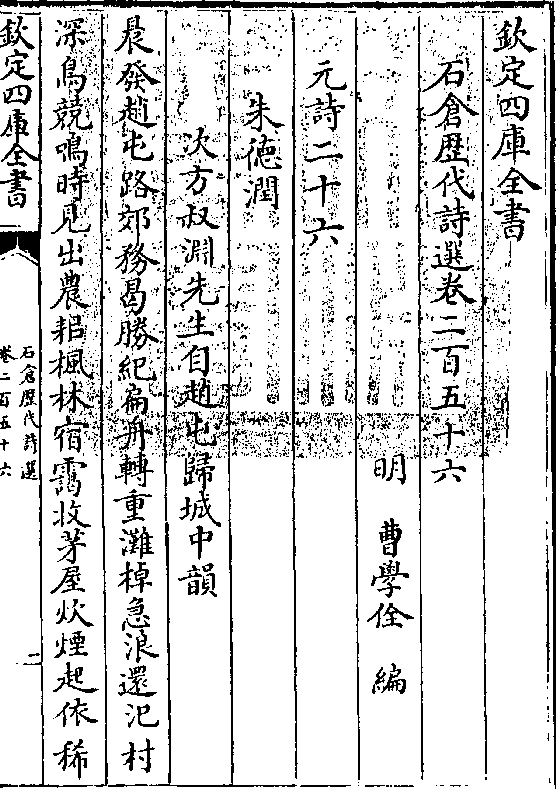 欽定四庫全書
石倉歴代詩選卷二百五十六
明 曹學佺 編
元詩二十六
朱徳潤
次方叔淵先生自趙屯歸城中韻
晨發趙屯路郊務曷勝紀扁舟轉重灘棹急浪還汜村
深鳥競鳴時見出農耜楓林宿靄收茅屋炊煙起依稀
欽定四庫全書
石倉歴代詩選
卷二百五十六
二